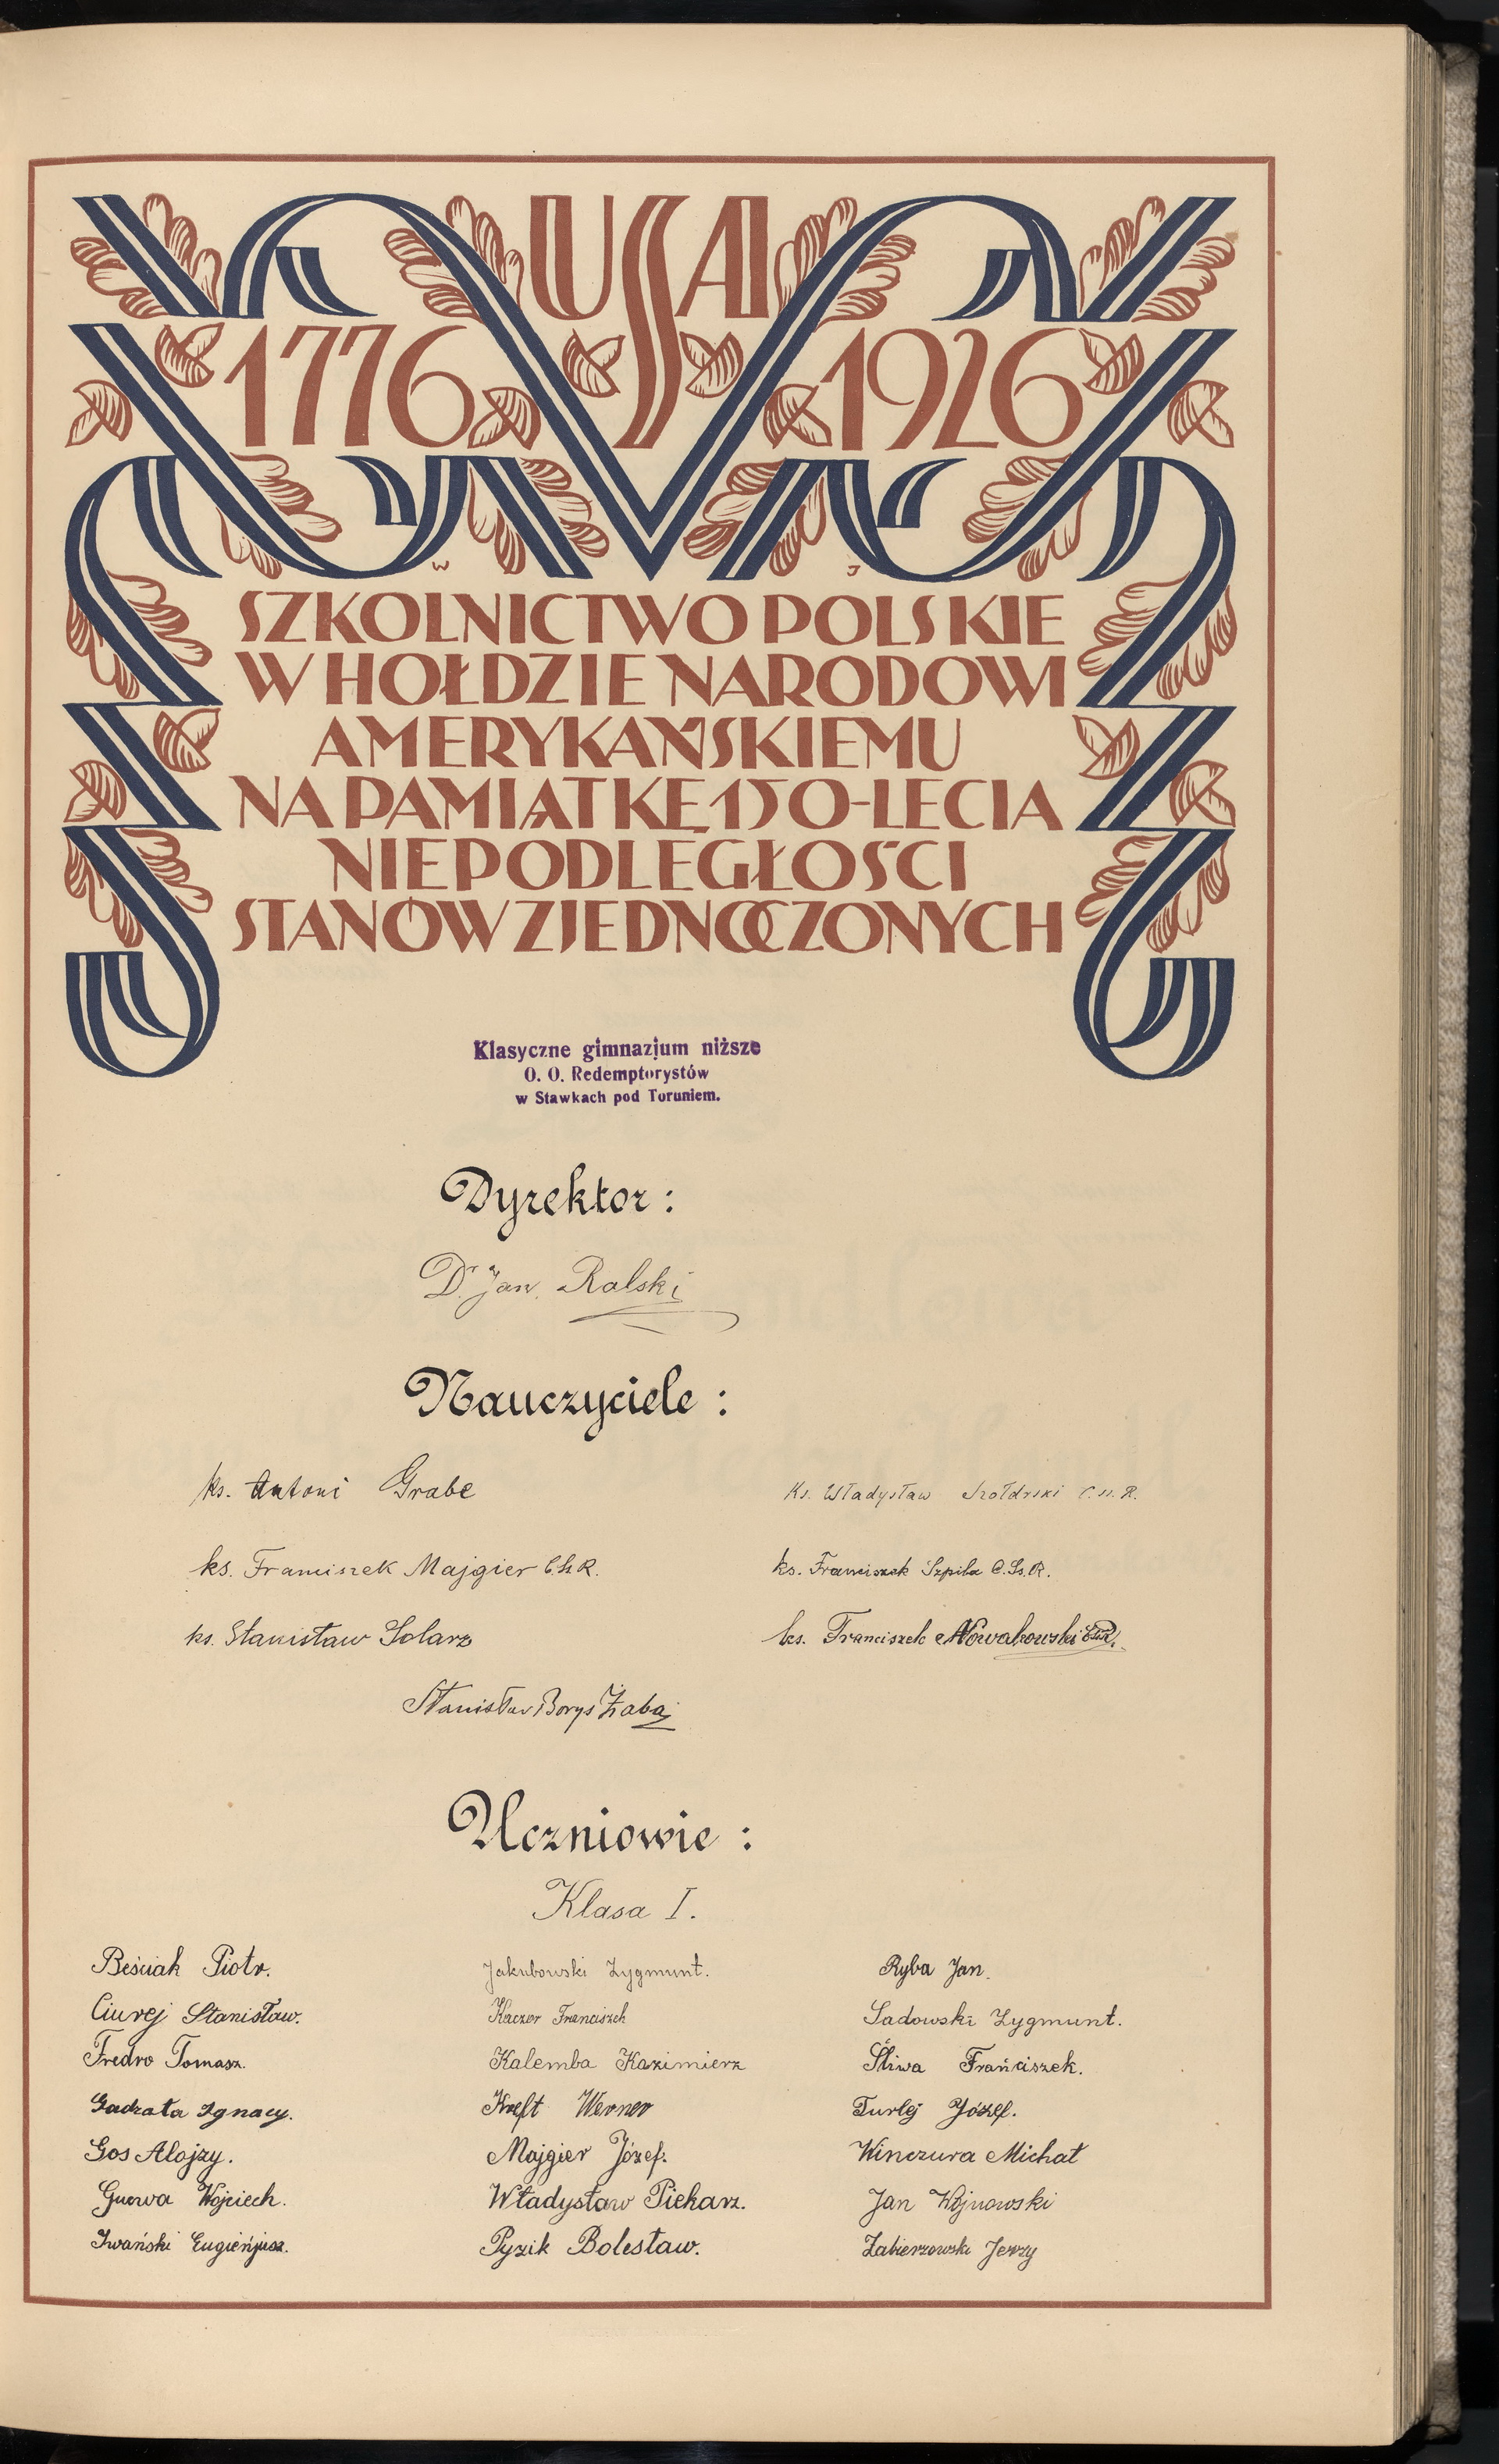 USA
1776 1926
W J
SZKOLNICTWO POLSKIE
W HOŁDZIE NARODOWI
AMERYKAŃSKIEMU
NA PAMIĄTKĘ 150-LECIA
NIEPODLEGŁOŚCI
STANÓW ZJEDNOCZONYCH
Klasyczne gimnazjum niższe
O. O. Redemptorystów
w Stawkach pod Toruniem.
Dyrektor:
Dr Jan Ralski
Nauczyciele:
ks. Antoni Grabe
Ks. Władysław Szołdrski C.SS.R.
ks. Franciszek Majgier C.SS.R.
ks. Franciszek Szpila C.Ss.R.
ks. Stanisław Solarz
ks. Franciszek Nowakowski CSsR.
Stanisław Borys Żaba
Uczniowie:
Klasa I.
Beściak Piotr.
Jakubowski Zygmunt.
Ryba Jan.
Ciurej Stanisław.
Kaczor Franciszek
Sadowski Zygmunt.
Fredro Tomasz.
Kalemba Kazimierz
Śliwa Frańciszek.
Gadzała Ignacy.
Kreft Werner
Turlej Józef.
Gos Alojzy.
Majgier Józef.
Winczura Michał
Wojciech.
Władysław Piekarz.
Jan Wojnowski
Iwański Eugieńjusz.
Pyzik Bolesław.
Zabierzowski Jerzy